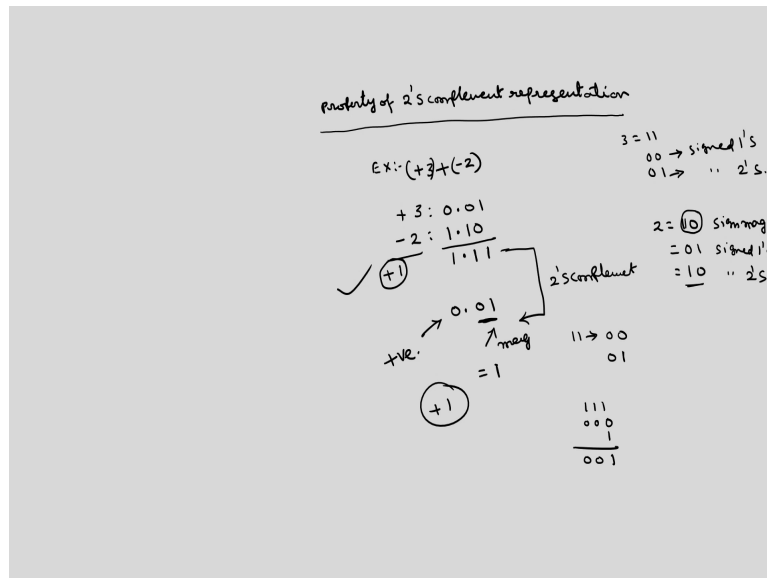 property of 2's complement representation
Ex:- (+3)+(-2)
+3 : 0.01
-2 : 1.10
+1
1.11
2's complemet
0.01
+ve.
mag
= 1
+1
3 = 11
00 → signed 1's
01 → " 2's.
2 = 10 sign mag
= 01 signed 1'
= 10 " 2's
11 → 00
01
111
000
1
001